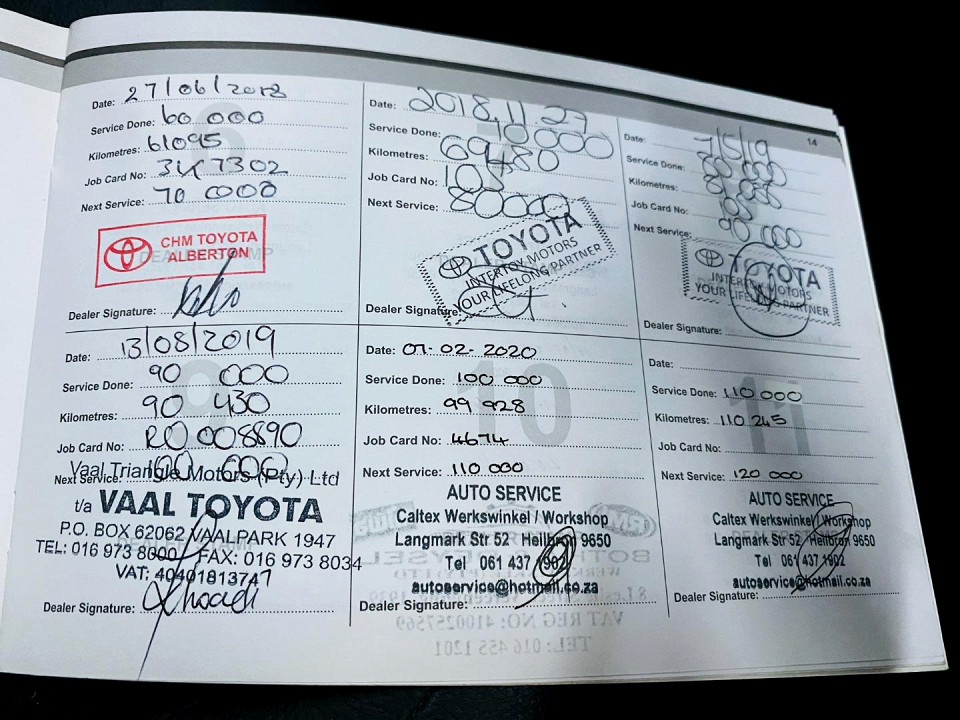 14
Date: 27/06/2018
Service Done: 60 000
Kilometres: 61095
Job Card No:
Next Service: 70 000
CHM TOYOTA
ALBERTON
Dealer Signature:
Date: 2018.11.27
Service Done: 70000
Kilometres: 69480
Job Card No:
Next Service: 80000
TOYOTA
INTERTOY MOTORS
YOUR LIFELONG PARTNER
Dealer Signature:
Date: 7/5/19
Service Done: 80 000
Kilometres:
Job Card No:
Next Service: 90 000
TOYOTA
INTERTOY MOTORS
YOUR LIFELONG PARTNER
Dealer Signature:
Date: 13/08/2019
Service Done: 90 000
Kilometres: 90 430
Job Card No: RO 008890
Next Service: 100 000
Vaal Triangle Motors (Pty) Ltd
t/a VAAL TOYOTA
P.O. BOX 62062 VAALPARK 1947
TEL: 016 973 8000 FAX: 016 973 8034
VAT: 4040181374
Dealer Signature:
10
Date: 07-02-2020
Service Done: 100 000
Kilometres: 99 928
Job Card No: 4674
Next Service: 110 000
AUTO SERVICE
Caltex Werkswinkel / Workshop
Langmark Str 52 Heilbron 9650
Tel 061 437 1902
autoservice@hotmail.co.za
Dealer Signature:
11
Date:
Service Done: 110 000
Kilometres: 110 245
Job Card No:
Next Service: 120 000
AUTO SERVICE
Caltex Werkswinkel / Workshop
Langmark Str 52 Heilbron 9650
Tel 061 437 1902
autoservice@hotmail.co.za
Dealer Signature:
VAT REG NO: 4100257569
TEL: 016 455 1201